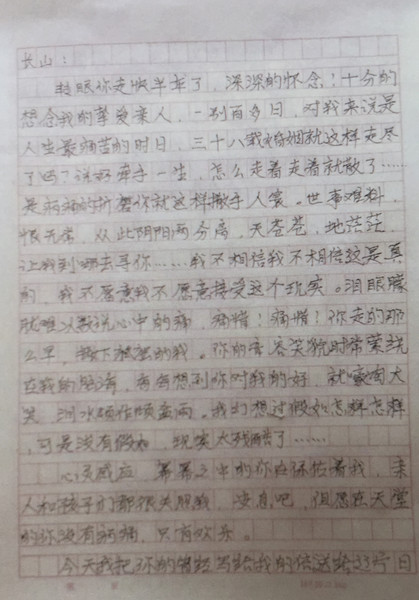 长山：
转眼你走快半年了，深深的怀念！十分的
想念我的挚爱亲人，一别百多日，对我来说是
人生最痛苦的时日，三十八载婚姻就这样走尽
了吗？说好牵手一生，怎么走着走着就散了……
是病痛的折磨你就这样撒手人寰。世事难料，
恨无常，从此阴阳两分离，天苍苍，地茫茫，
让我到哪去寻你……我不相信我不相信这是真
的，我不愿意我不愿意接受这个现实。泪眼朦
胧难以数说心中的痛，痛惜！痛惜！你走的那
么早，撇下孤独的我。你的音容笑貌时常萦绕
在我的脑海，每每想到你对我的好，就嚎啕大
哭，泪水顿作倾盆雨。我幻想过假如怎样怎样
，可是没有假如，现实太残酷了……
心灵感应，冥冥之中的你应保佑着我，亲
人和孩子们都很关照我，安息吧，但愿在天堂
的你没有病痛，只有欢乐。
今天我把你的 写给我的信送给